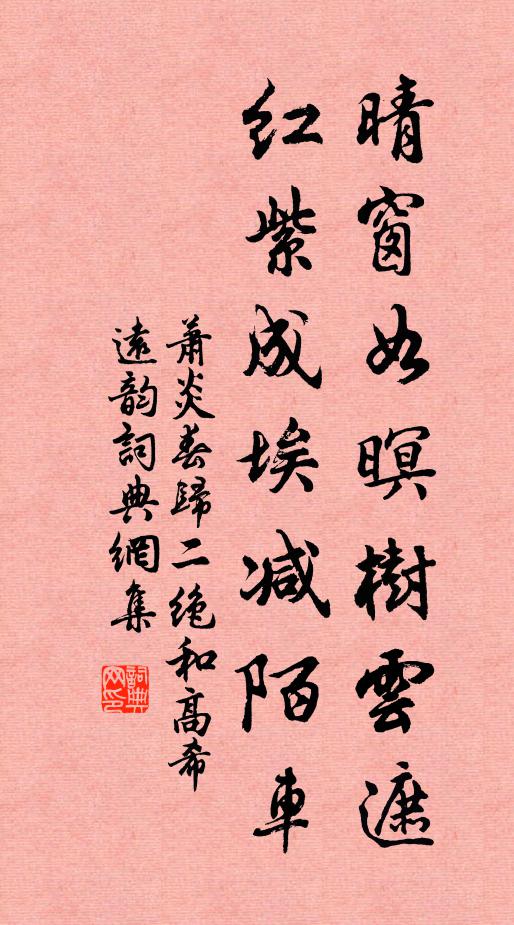 晴窗如暝樹雲遮
紅紫成埃減陌車
蕭炎春歸二絶和高希
遠韵詞典網集
詞典网印